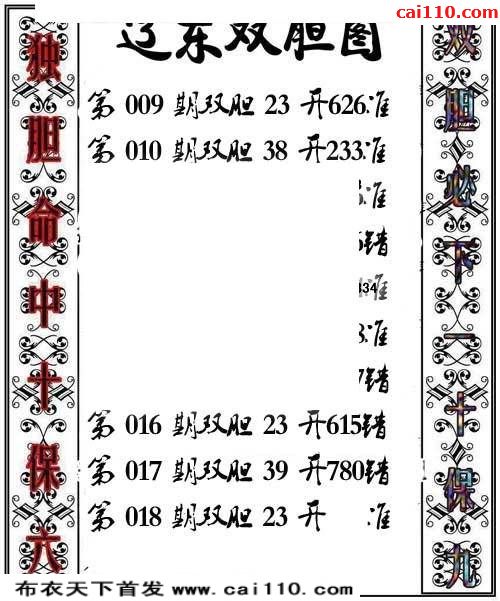 cai110.com
辽东双胆图
独胆命中十保六
双胆必下一十保九
第 009 期双胆 23 开626准
第 010 期双胆 38 开233准
准
错
434准
3准
错
第 016 期双胆 23 开615错
第 017 期双胆 39 开780错
第 018 期双胆 23 开 准
布衣天下首发 www.cai110.com